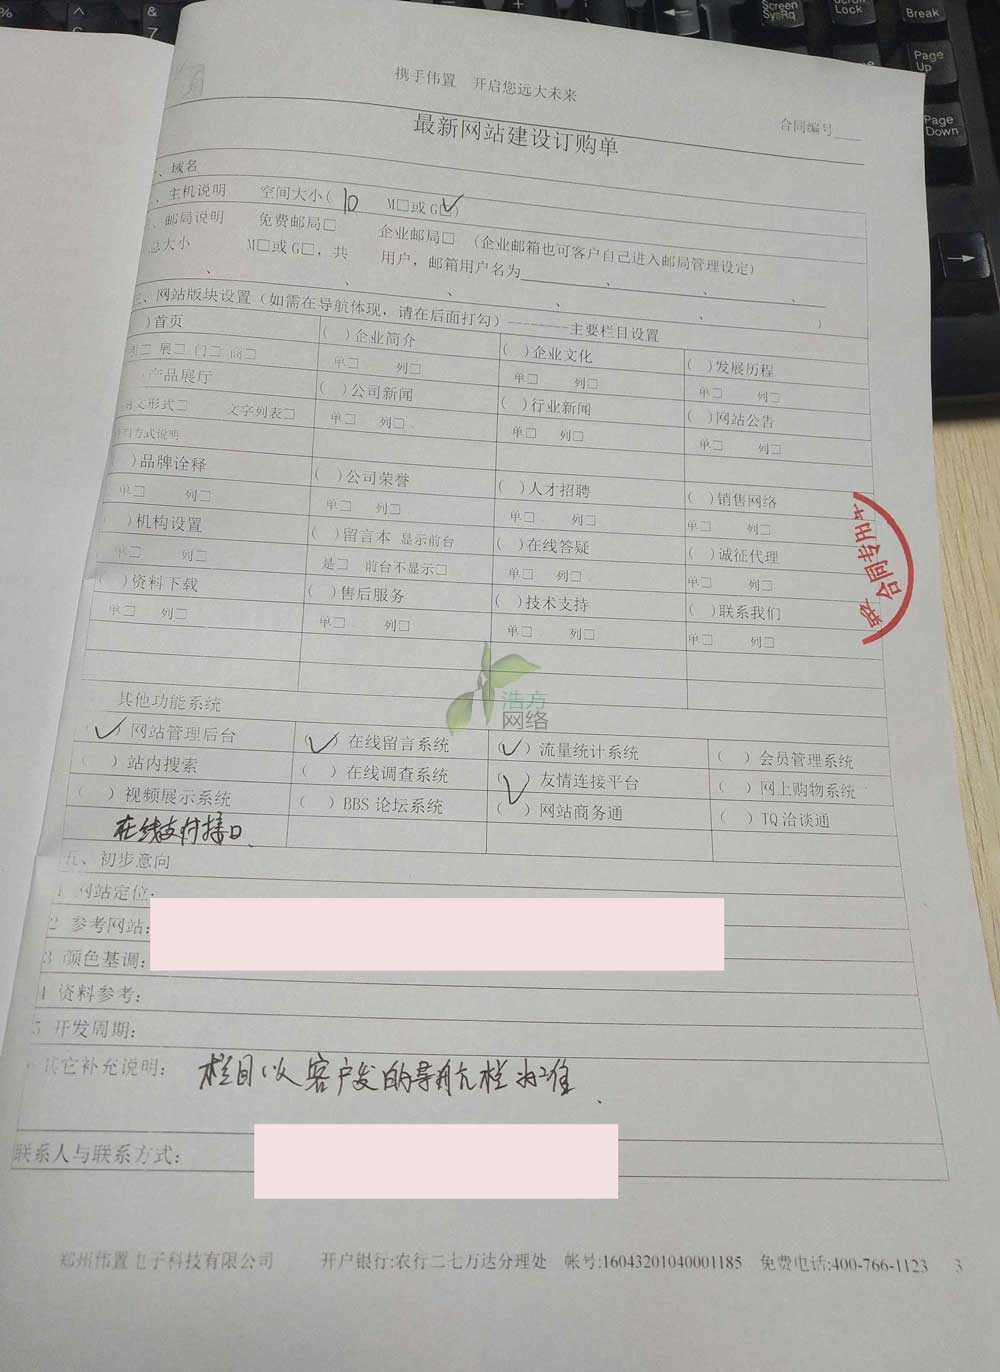 携手伟置 开启您远大未来
合同编号
最新网站建设订购单
、域名
、主机说明 空间大小( 10 M□或G☑)
、邮局说明 免费邮局□ 企业邮局□ (企业邮箱也可客户自己进入邮局管理设定)
总大小 M□或G□，共 用户，邮箱用户名为
、 、 、 、 、 、 、 )
三、网站版块设置（如需在导航体现，请在后面打勾）--------主要栏目设置
)首页 ( )企业简介 ( )企业文化 ( )发展历程
□ 展□ 门□ 商□ 单□ 列□ 单□ 列□ 单□ 列□
产品展厅 ( )公司新闻 ( )行业新闻 ( )网站公告
文形式□ 文字列表□ 单□ 列□ 单□ 列□ 单□ 列□
方式说明
)品牌诠释 ( )公司荣誉 ( )人才招聘 ( )销售网络
单□ 列□ 单□ 列□ 单□ 列□ 单□ 列□
)机构设置 ( )留言本 显示前台 ( )在线答疑 ( )诚征代理
单□ 列□ 是□ 前台不显示□ 单□ 列□ 单□ 列□
( )资料下载 ( )售后服务 ( )技术支持 ( )联系我们
单□ 列□ 单□ 列□ 单□ 列□ 单□ 列□
合同专用
浩方
网络
其他功能系统
(✓)网站管理后台 (✓)在线留言系统 (✓)流量统计系统 ( )会员管理系统
( )站内搜索 ( )在线调查系统 (✓)友情连接平台 ( )网上购物系统
( )视频展示系统 ( )BBS 论坛系统 ( )网站商务通 ( )TQ洽谈通
在线支付接口
五、初步意向
1 网站定位:
2 参考网站:
3 颜色基调:
4 资料参考:
5 开发周期:
其它补充说明: 栏目以客户发的导航栏为准
联系人与联系方式:
郑州伟置电子科技有限公司 开户银行:农行二七万达分理处 帐号:16043201040001185 免费电话:400-766-1123 3
%
^
&
7
+
Screen
SysRq
Scroll
Lock
Break
Page
Up
Page
Down